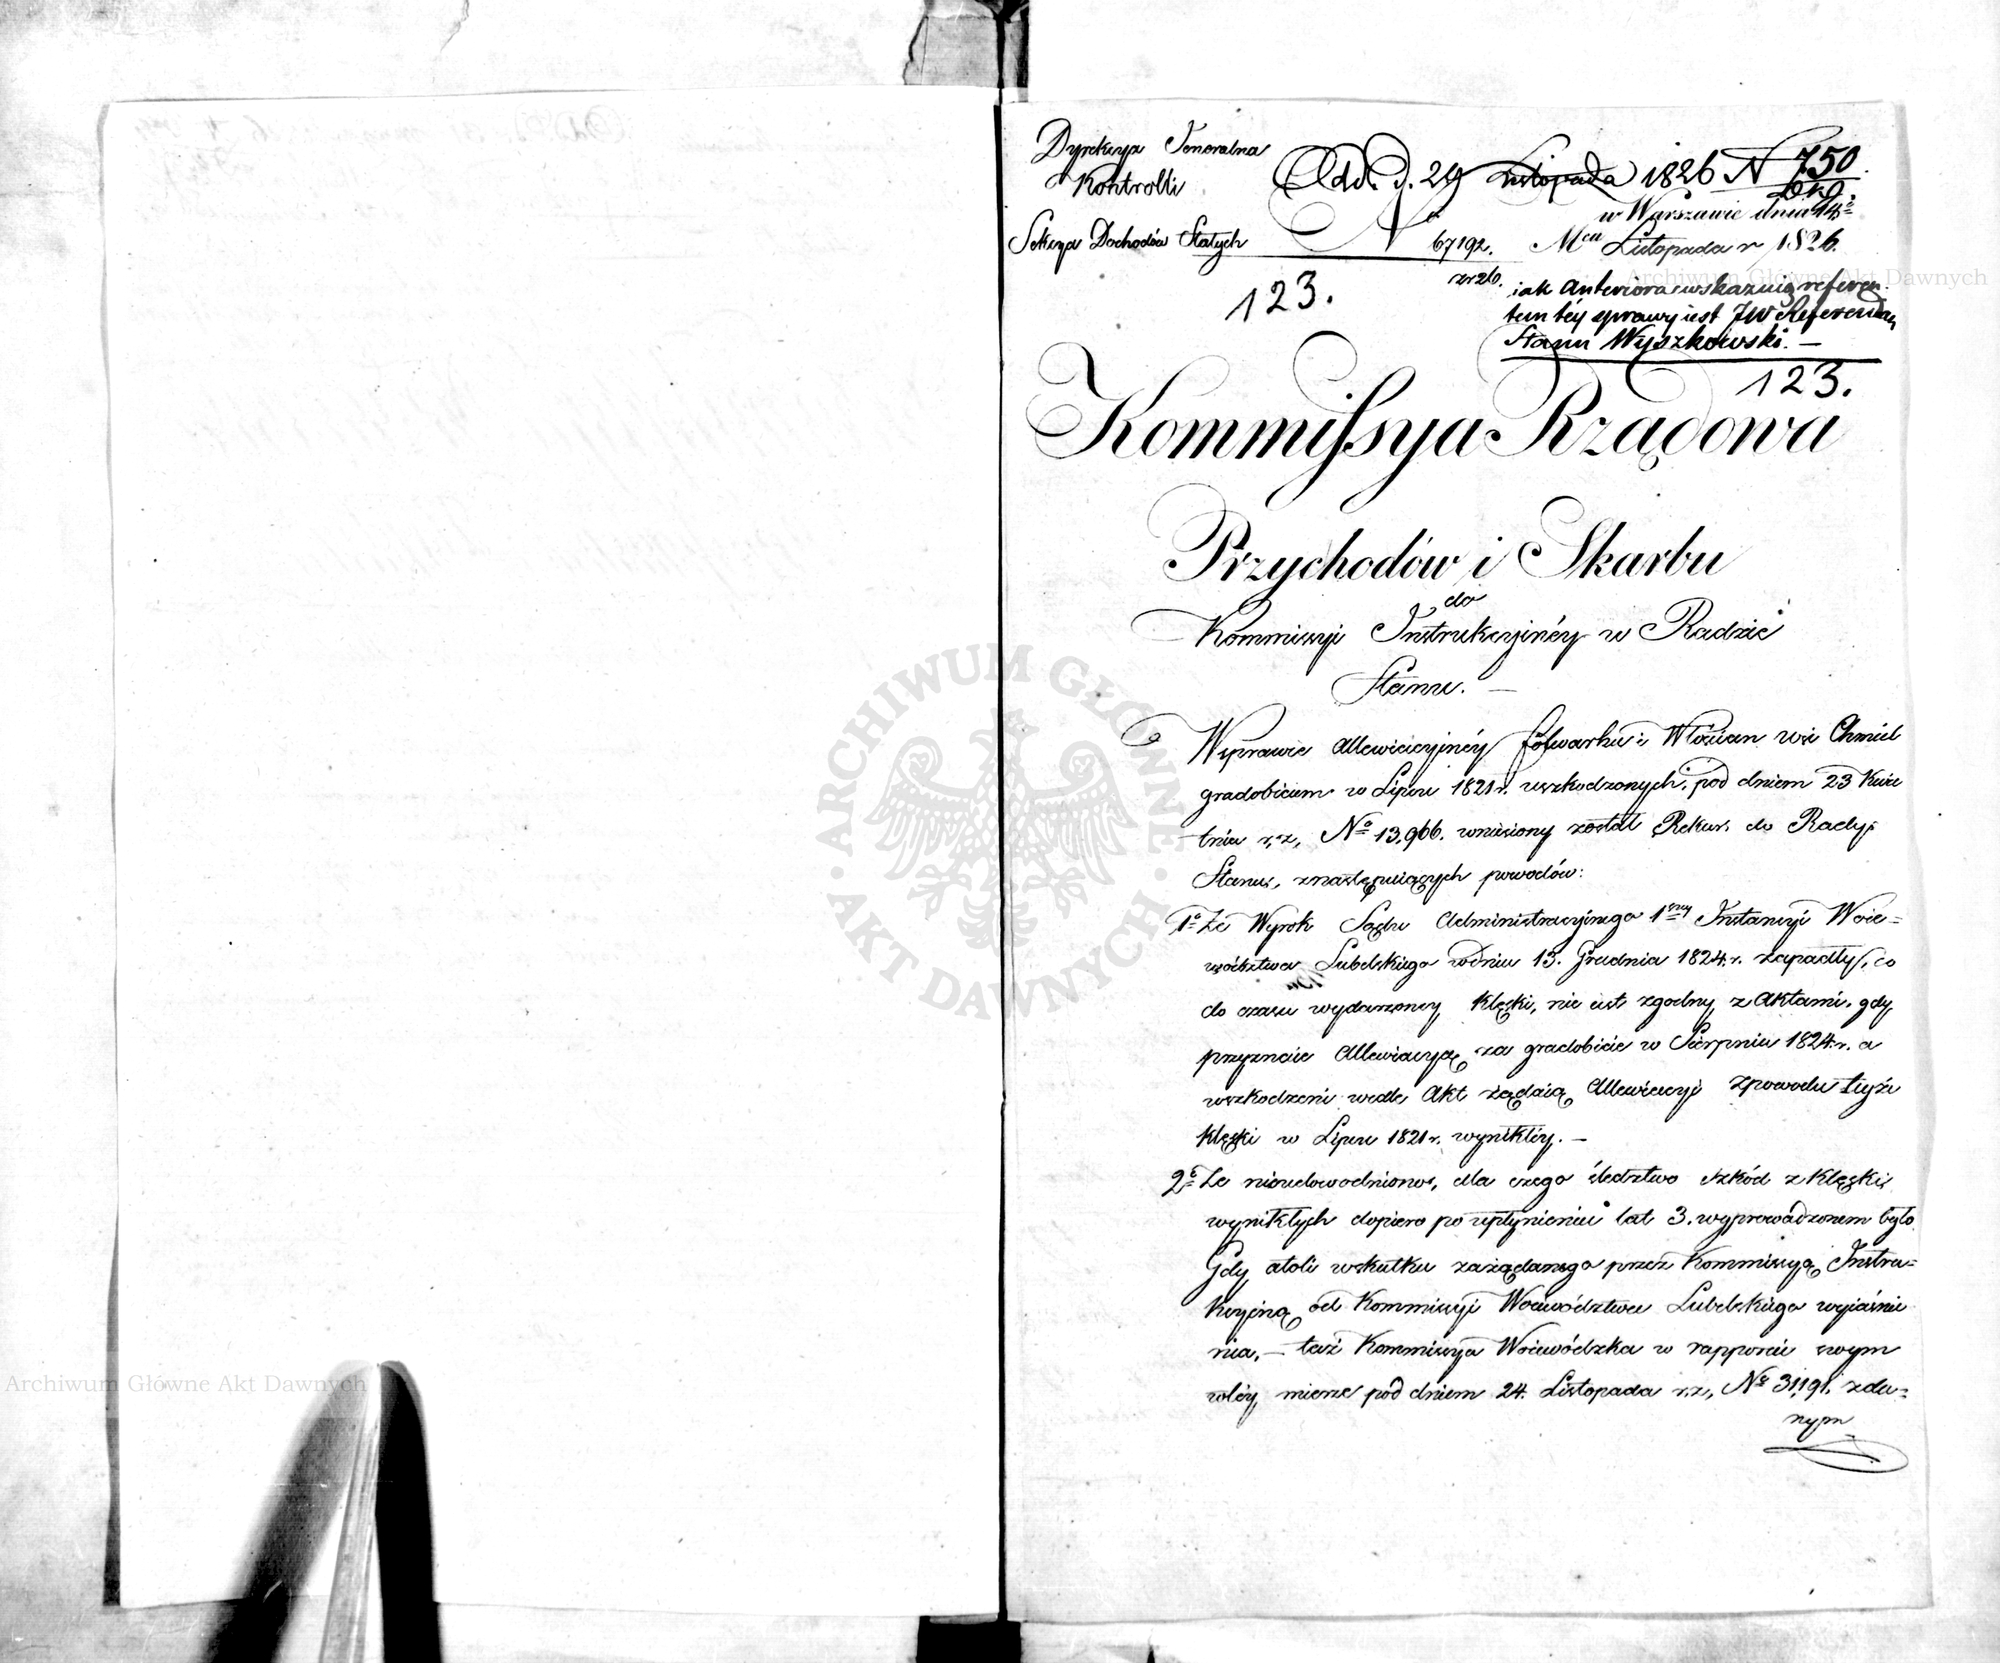 Dyrekcya Jeneralna
Kontrolli
Odd. d. 29 Listopada 1826 N 750
w Warszawie dnia 14º
Sekcya Dochodów Stałych
Nº 67192.
Mca Listopada r 1826.
123.
iak Anteriora wskazuią referen-
tem téy sprawy iest JW Referendarz
Stanu Wyszkowski. —
123.
Kommissya Rządowa
Przychodów i Skarbu
do
Kommissyi Instrukcyinéy w Radzie
Stanu. —
W sprawie Allewiacyinéy folwarku i Włościan wsi Chmiel
gradobiciem w Lipcu 1821 r. uszkodzonych, pod dniem 23 Kwie
tnia r. z. Nº 13,966. wniesiony został Rekurs do Rady
Stanu, z następuiących powodów:
1º Że Wyrok Sądu Administracyinego 1szey Instancyi Woie=
wództwa Lubelskiego w dniu 13. Grudnia 1824. r. zapadły, co
do czasu wydarzoney klęski, nie iest zgodny z Aktami, gdy
przyznaie Allewiacyą za gradobicie w Sierpniu 1824. r. a
uszkodzeni wedle Akt żądaią Allewiacyi z powodu teyże
klęski w Lipcu 1821 r. wynikłéy. —
2º Że nieudowodniono, dla czego śledztwo szkód z klęski
wynikłych dopiero po upłynieniu lat 3. wyprowadzonem było.
Gdy atoli w skutku zażądanego przez Kommissyą Instru=
kcyiną od Kommissyi Woiewództwa Lubelskiego wyiaśnie
nia, — taż Kommissya Woiewódzka w rapporcie swym
w téy mierze pod dniem 24. Listopada r. z, Nº 31,191. zda=
nym